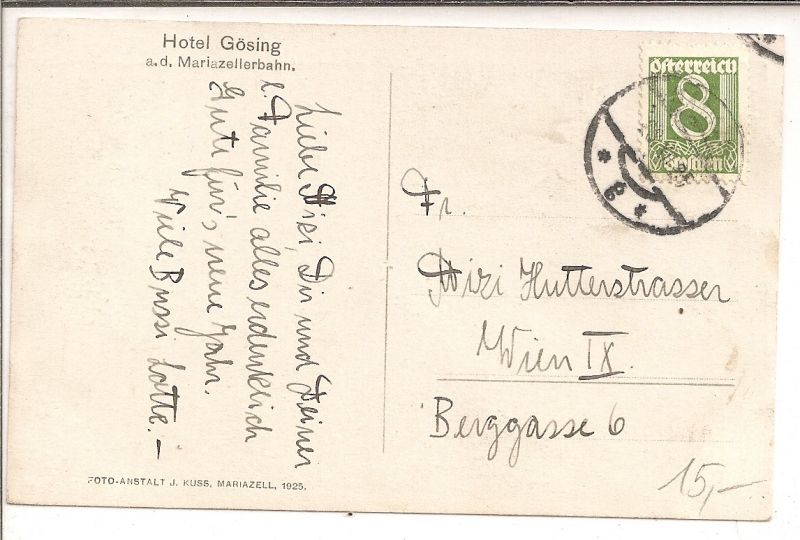 Hotel Gösing
a. d. Mariazellerbahn.
Liebe Mizi, Dir und Deiner
l. Familie alles erdenklich
Gute für's neue Jahr.
Viele Bussi Lotte.–
FOTO-ANSTALT J. KUSS, MARIAZELL, 1925.
Österreich
8
Groschen
* 8 *
Fr.
Mizi Hutterstrasser
Wien IX.
Berggasse 6
15,–